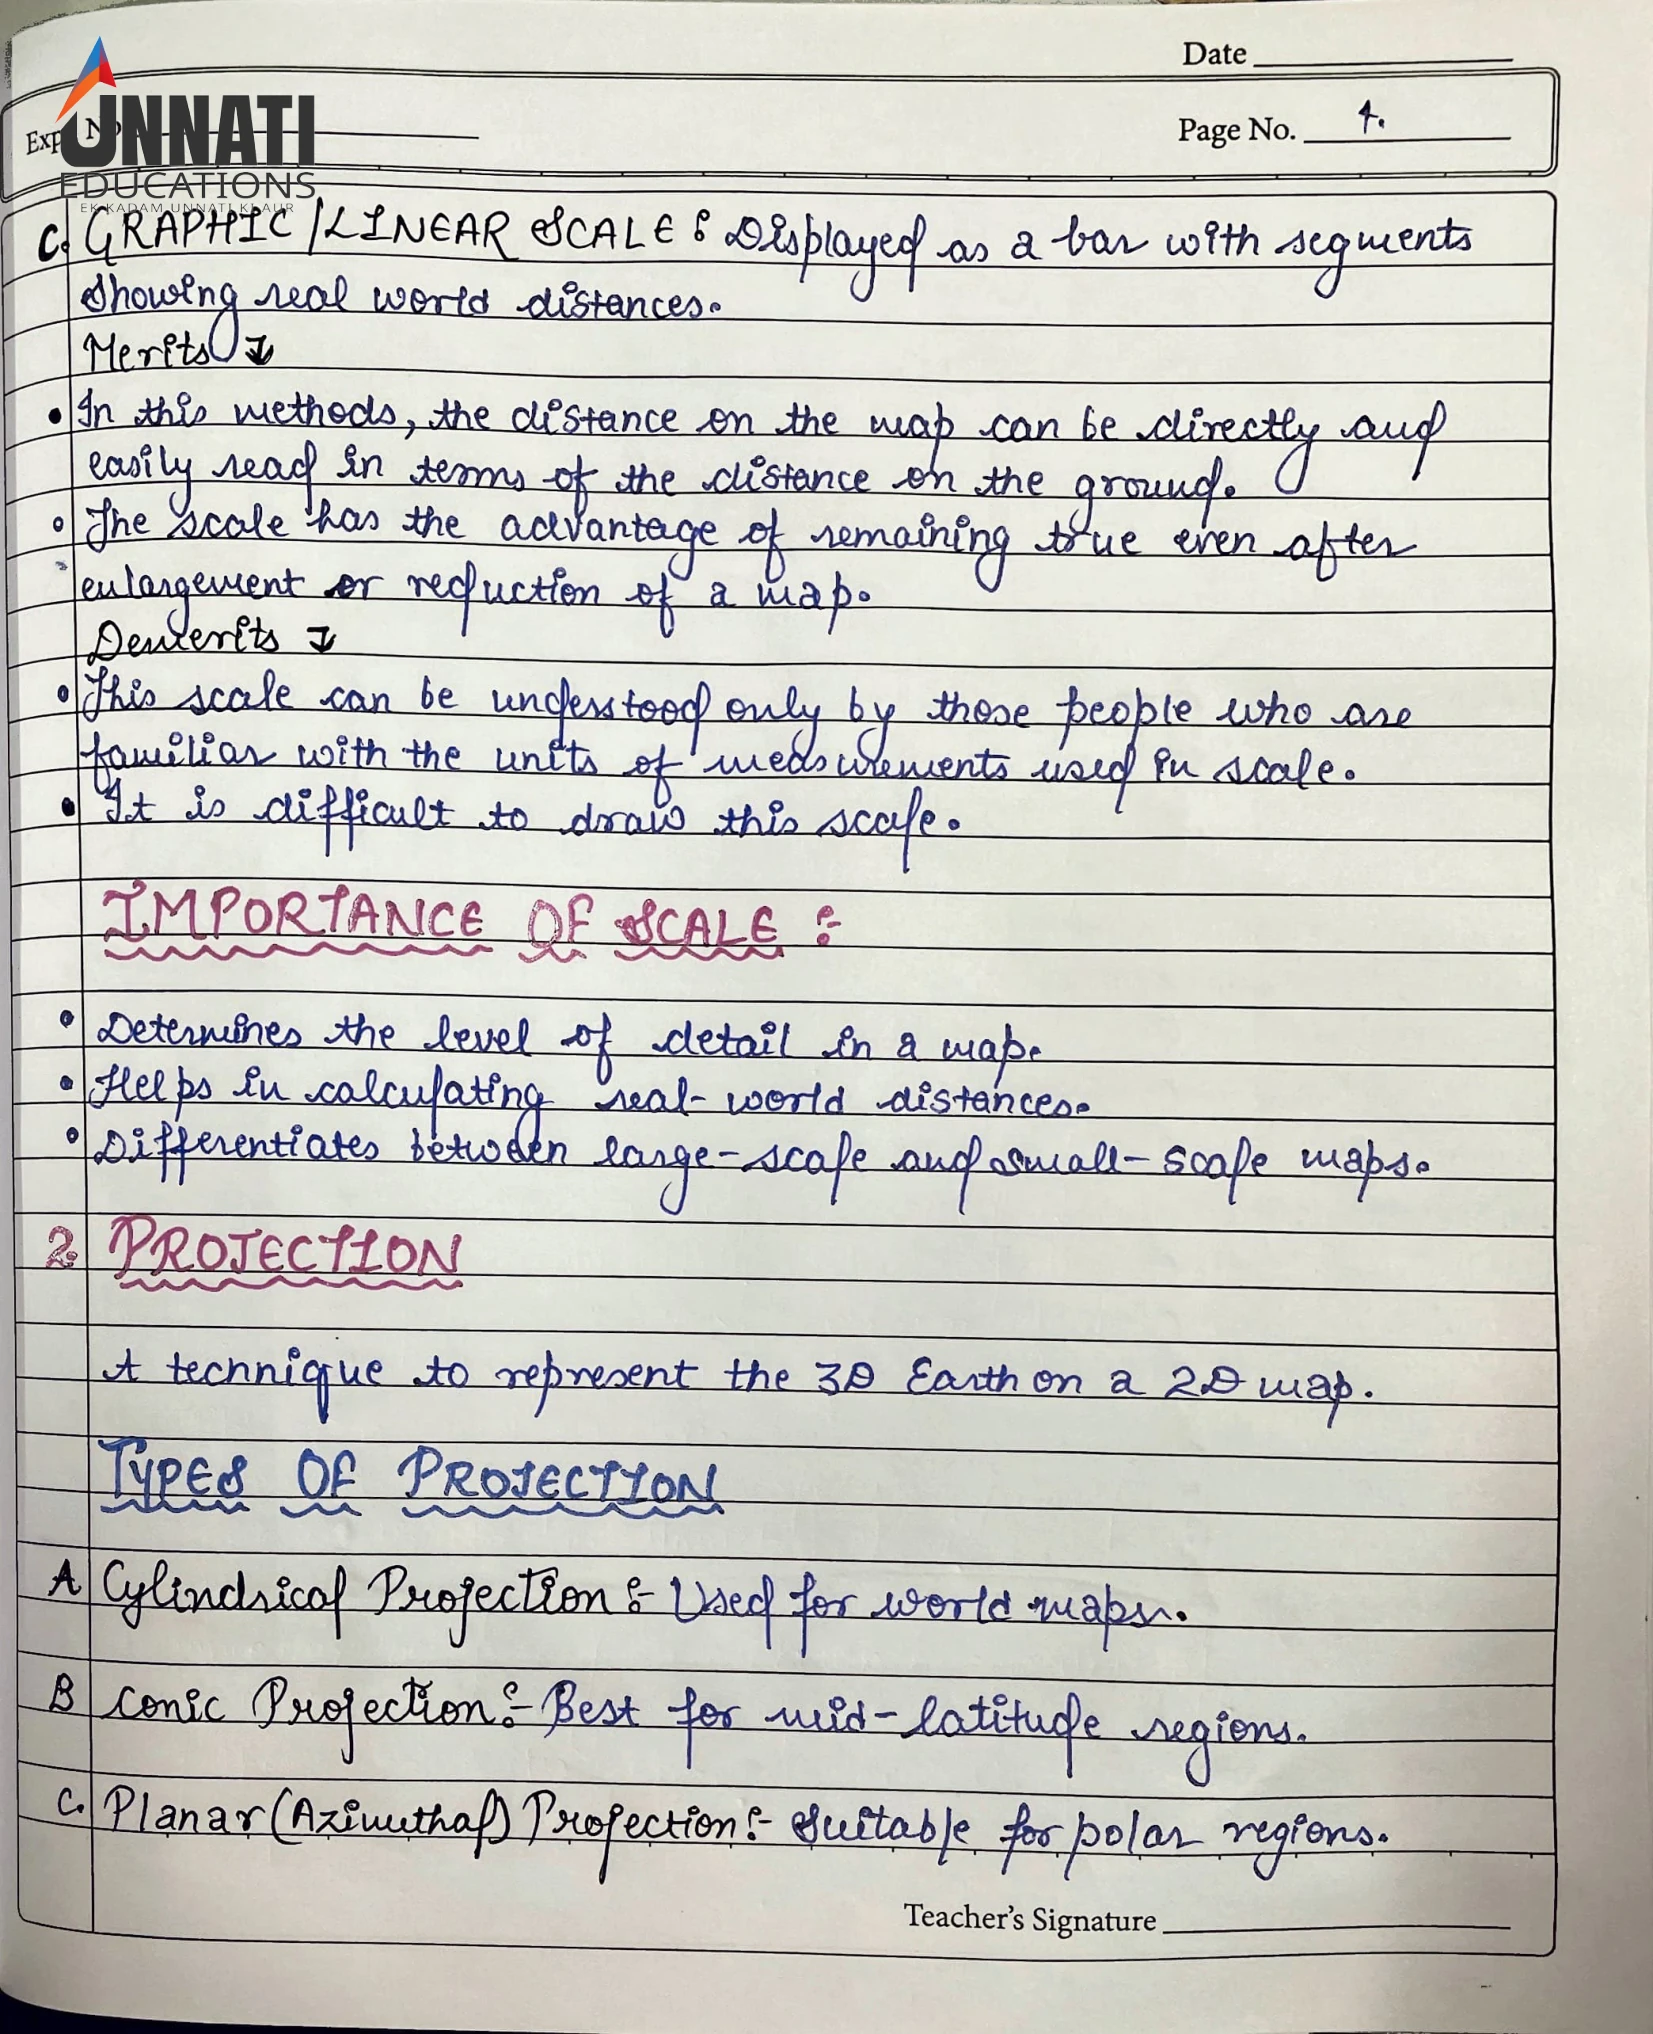 Date
UNNATI
EDUCATIONS
EK KADAM UNNATI KI AUR
Page No. 4.
C. GRAPHIC/LINEAR SCALE : Displayed as a bar with segments
showing real world distances.
Merits ↓
• In this methods, the distance on the map can be directly and
easily read in terms of the distance on the ground.
• The scale has the advantage of remaining true even after
enlargement or reduction of a map.
Demerits ↓
• This scale can be understood only by those people who are
familiar with the units of measurements used in scale.
• It is difficult to draw this scale.
IMPORTANCE OF SCALE :-
• Determines the level of detail in a map.
• Helps in calculating real-world distances.
• Differentiates between large-scale and small-scale maps.
2. PROJECTION
A technique to represent the 3D Earth on a 2D map.
TYPES OF PROJECTION
A Cylindrical Projection :- Used for world maps.
B Conic Projection :- Best for mid-latitude regions.
C. Planar (Azimuthal) Projection :- Suitable for polar regions.
Teacher's Signature